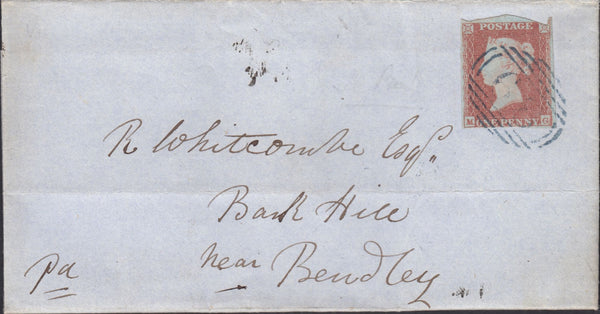 POSTAGE
M ONE PENNY G
R Whitcombe Esqr.
Bark Hill
near Bewdley
pd